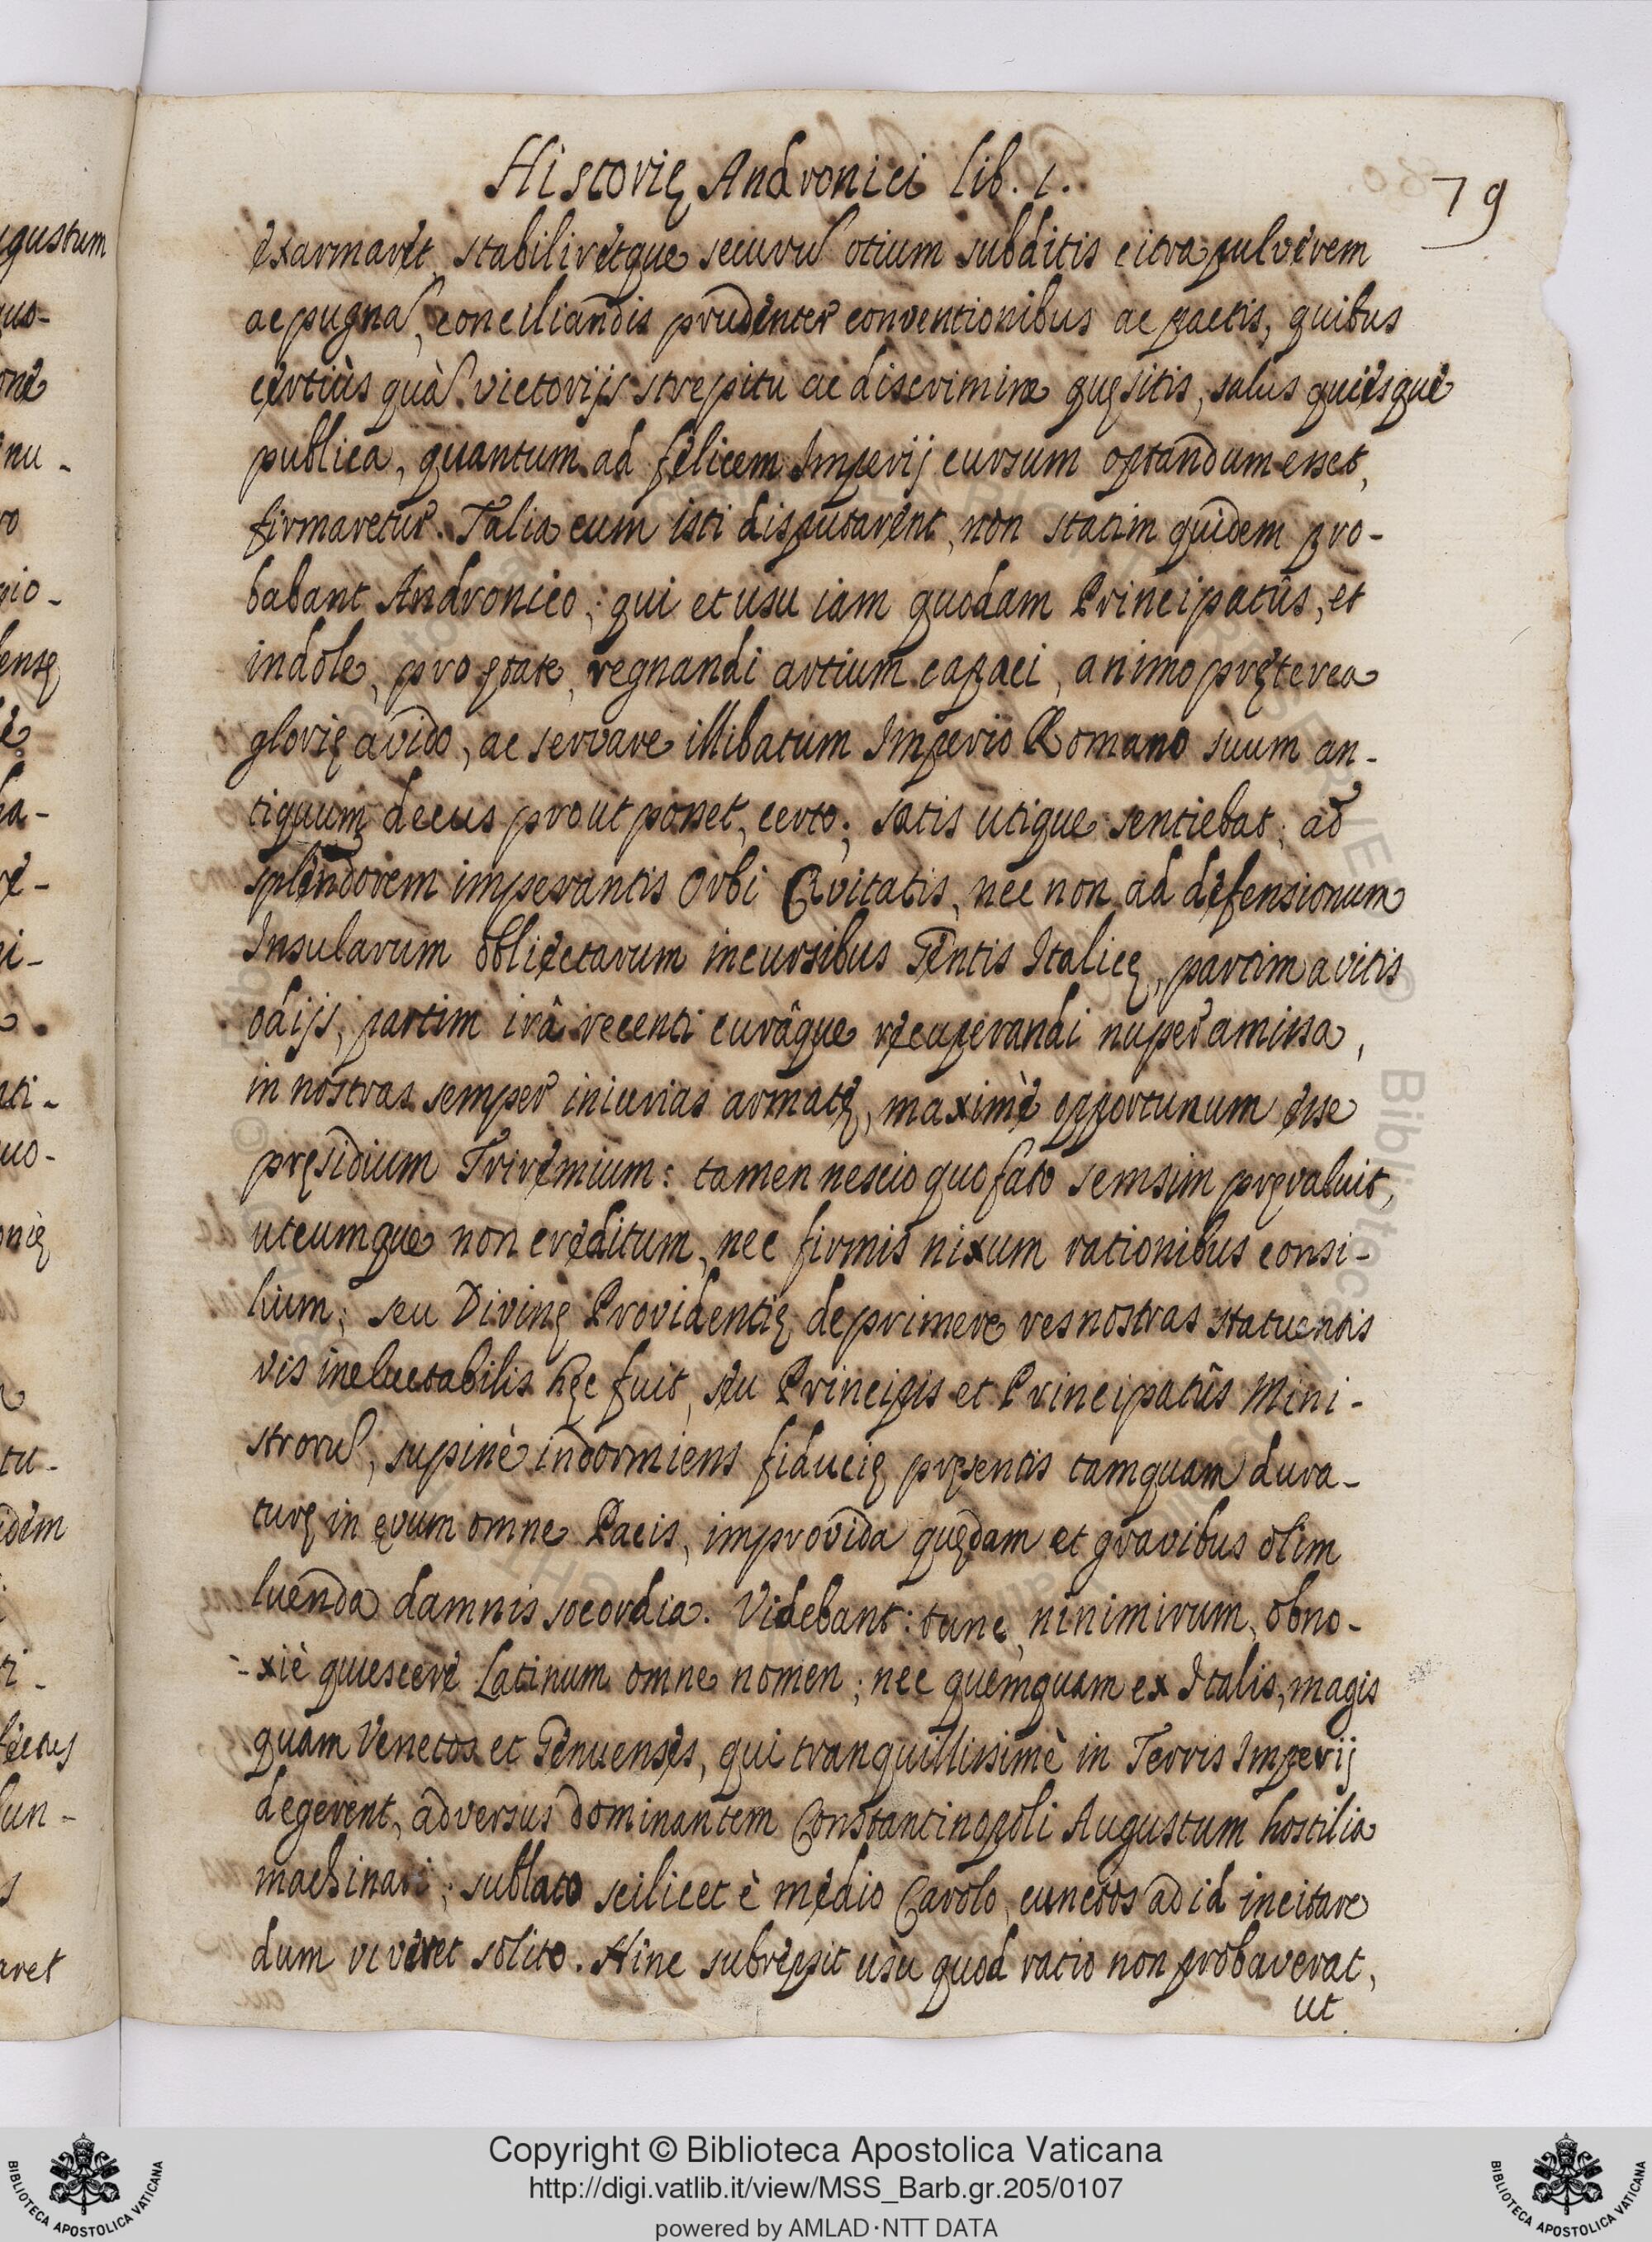 Historię Andronici lib. 1.
79
exarmaret, stabiliretque securũ otium subditis citra pulverem
ac pugnã, conciliandis prudenter conventionibus ac pactis, quibus
certiùs quã victorijs strepitu ac discrimine quęsitis, salus quiesque
publica, quantum ad felicem Imperij cursum optandum esset,
firmaretur. Talia cum isti disputarent, non statim quidem pro-
babant Andronico; qui et usu iam quodam Principatûs, et
indole, pro ętate, regnandi artium capaci, animo pręterea
glorię avido, ac servare illibatum Imperio Romano suum an-
tiquum decus prout posset, certo; satis utique sentiebat; ad
splendorem imperantis Orbi Civitatis, nec non ad defensionum
Insularum obliectarum incursibus Gentis Italicę, partim avitis
odijs, partim irâ recenti curâque recuperandi nuper amissa,
in nostras semper iniurias armatę, maximè opportunum esse
pręsidium Triremium: tamen nescio quo fato semsim pręvaluit,
utcumque non creditum, nec firmis nixum rationibus consi-
lium; seu Divinę Providentię deprimere res nostras statuentis
vis ineluctabilis hęc fuit, seu Principis et Principatûs Mini-
strorũ, supinè indormiens fiducię pręsentis tamquam dura-
turę in ęvum omne Pacis, improvida quędam et gravibus olim
luenda damnis socordia. Videbant: tunc, ninimirum, obno-
-xiè quiescere Latinum omne nomen; nec quemquam ex Italis, magis
quam Venetos et Genuenses, qui tranquillissimè in Terris Imperij
degerent, adversus dominantem Constantinopoli Augustum hostilia
machinari; sublato scilicet è medio Carolo, cunctos ad id incitare
dum viveret solito. Hinc subrepsit usu quod ratio non probaverat,
ut
ugustum
quo-
one
enu-
ro
gio-
ensę
ati-
quo-
onię
tu-
idem
ti-
aret
© Biblioteca Apostolica Vaticana
Copyright © Biblioteca Apostolica Vaticana
http://digi.vatlib.it/view/MSS_Barb.gr.205/0107
powered by AMLAD·NTT DATA
BIBLIOTECA APOSTOLICA VATICANA
BIBLIOTECA APOSTOLICA VATICANA